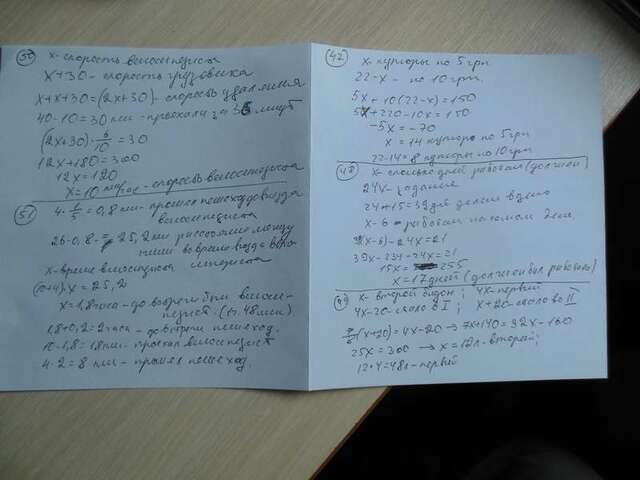 50 x - скорость велосипедиста
x+30 - скорость грузовика
x+x+30=(2x+30) - скорость удаления
40-10=30 км - проехали за 36 минут
(2x+30)·6/10=30
12x+180=300
12x=120
x=10 км/час - скорость велосипедиста
51 4·1/5=0,8 км - прошел пешеход до выезда
велосипедиста
26-0,8=25,2 км расстояние между
ними во время выезда
x - время велосипедиста
(10+4)·x=25,2
x=1,8 часа - до встречи был велоси-
педист. (1ч. 48 мин)
1,8+0,2=2 часа - до встречи пешеход.
10·1,8=18 км - проехал велосипедист
4·2=8 км - прошел пешеход.
47 x - купюры по 5 грн
22-x - по 10 грн.
5x+10(22-x)=150
5x+220-10x=150
-5x=-70
x=14 купюр по 5 грн
22-14=8 купюры по 10 грн
48 x - сколько дней работал (должен)
24x - задание
24+15=39 деталей в день
x-6 - работал на самом деле.
39(x-6)-24x=21
39x-234-24x=21
15x=255
x=17 дней (должен был работать)
49 x - второй бидон; 4x - первый
4x-20 - стало в I; x+20 - стало во II
(x+20)=4x-20 → 7x+140=32x-160
25x=300 → x=12 л - второй;
12·4=48 л - первый